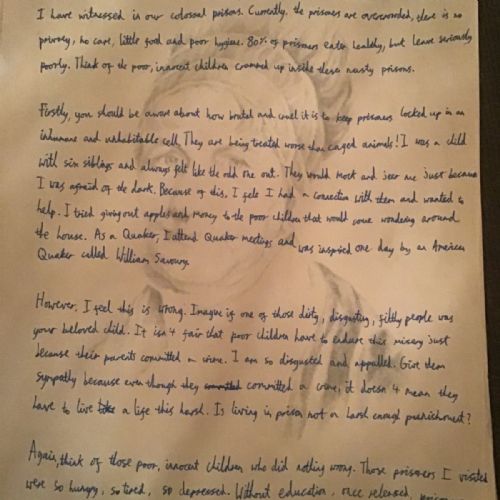 I have witnessed in our colossal prisons. Currently, the prisoners are overcrowded, there is no
privacy, no care, little food and poor hygiene. 80% of prisoners enter healthy, but leave seriously
poorly. Think of the poor, innocent children crammed up inside these nasty prisons.
Firstly, you should be aware about how brutal and cruel it is to keep prisoners locked up in an
inhumane and unhabitable cell. They are being treated worse than caged animals! I was a child
with six siblings and always felt like the odd one out. They would mock and jeer me just because
I was afraid of the dark. Because of this, I felt I had a connection with them and wanted to
help. I tried giving out apples and money to the poor children that would come wondering around
the house. As a Quaker, I attend Quaker meetings and was inspired one day by an American
Quaker called William Savoury.
However, I feel this is wrong. Imagine if one of those dirty, disgusting, filthy people was
your beloved child. It isn't fair that poor children have to endure this misery just
because their parents committed a crime. I am so disgusted and appalled. Give them
sympathy because even though they committed a crime, it doesn't mean they
have to live a life this harsh. Is living in prison not a harsh enough punishment?
Again, think of those poor, innocent children who did nothing wrong. Those prisoners I visited
were so hungry, so tired, so depressed. Without education, once released,